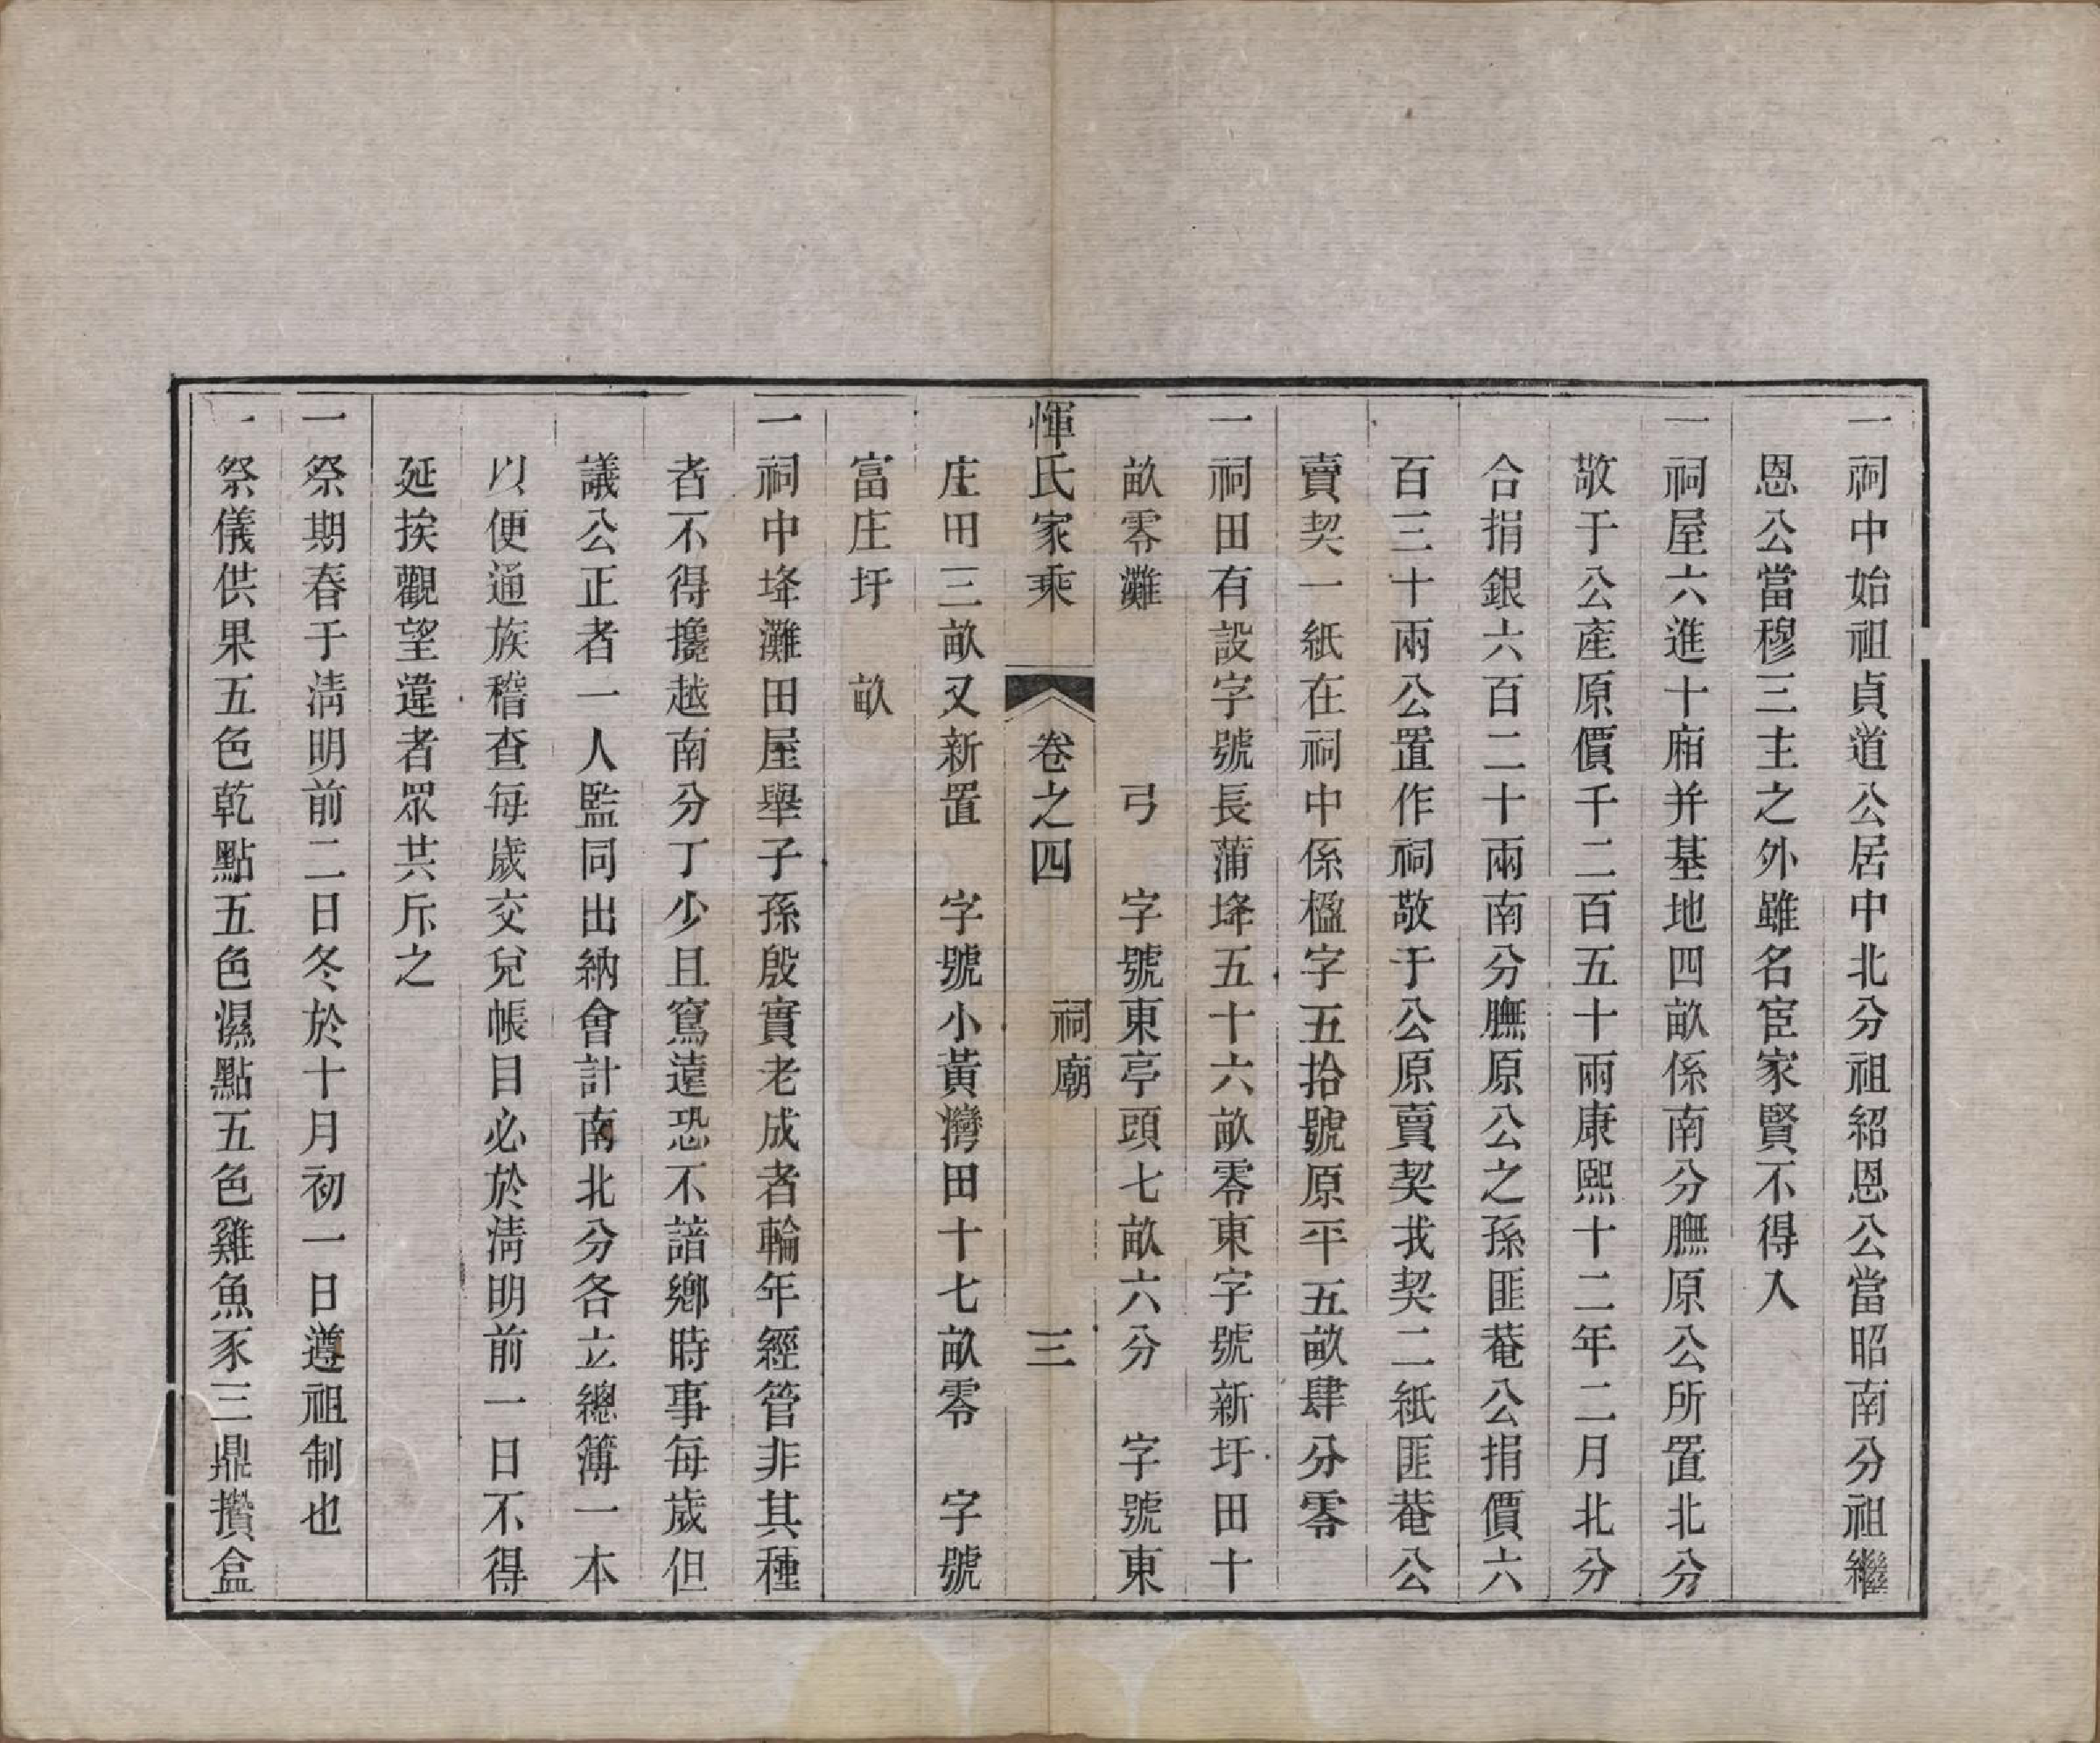 一祠中始祖貞道公居中北分祖紹恩公當昭南分祖繼
恩公當穆三主之外雖名宦家賢不得入
一祠屋六進十廂并基地四畝係南分膴原公所置北分
敬于公產原價千二百五十兩康熙十二年二月北分
合捐銀六百二十兩南分膴原公之孫匪菴公捐價六
百三十兩公置作祠敬于公原賣契我契二紙匪菴公
賣契一紙在祠中係楹字五拾號原平五畝肆分零
一祠田有設字號長蒲埄五十六畝零東字號新圩田十
畝零灘　　　弓　字號東亭頭七畝六分　字號東
惲氏家乘　卷之四　祠廟　三
庄田三畝又新置　字號小黃灣田十七畝零　字號
富庄圩　畝
一祠中埄灘田屋舉子孫殷實老成者輪年經管非其種
者不得攙越南分丁少且寫遠恐不諳鄉時事每歲但
議公正者一人監同出納會計南北分各立總簿一本
以便通族稽查每歲交兌帳目必於淸明前一日不得
延挨觀望違者眾共斥之
一祭期春于淸明前二日冬於十月初一日遵祖制也
一祭儀供果五色乾點五色濕點五色雞魚豕三鼎攢盒